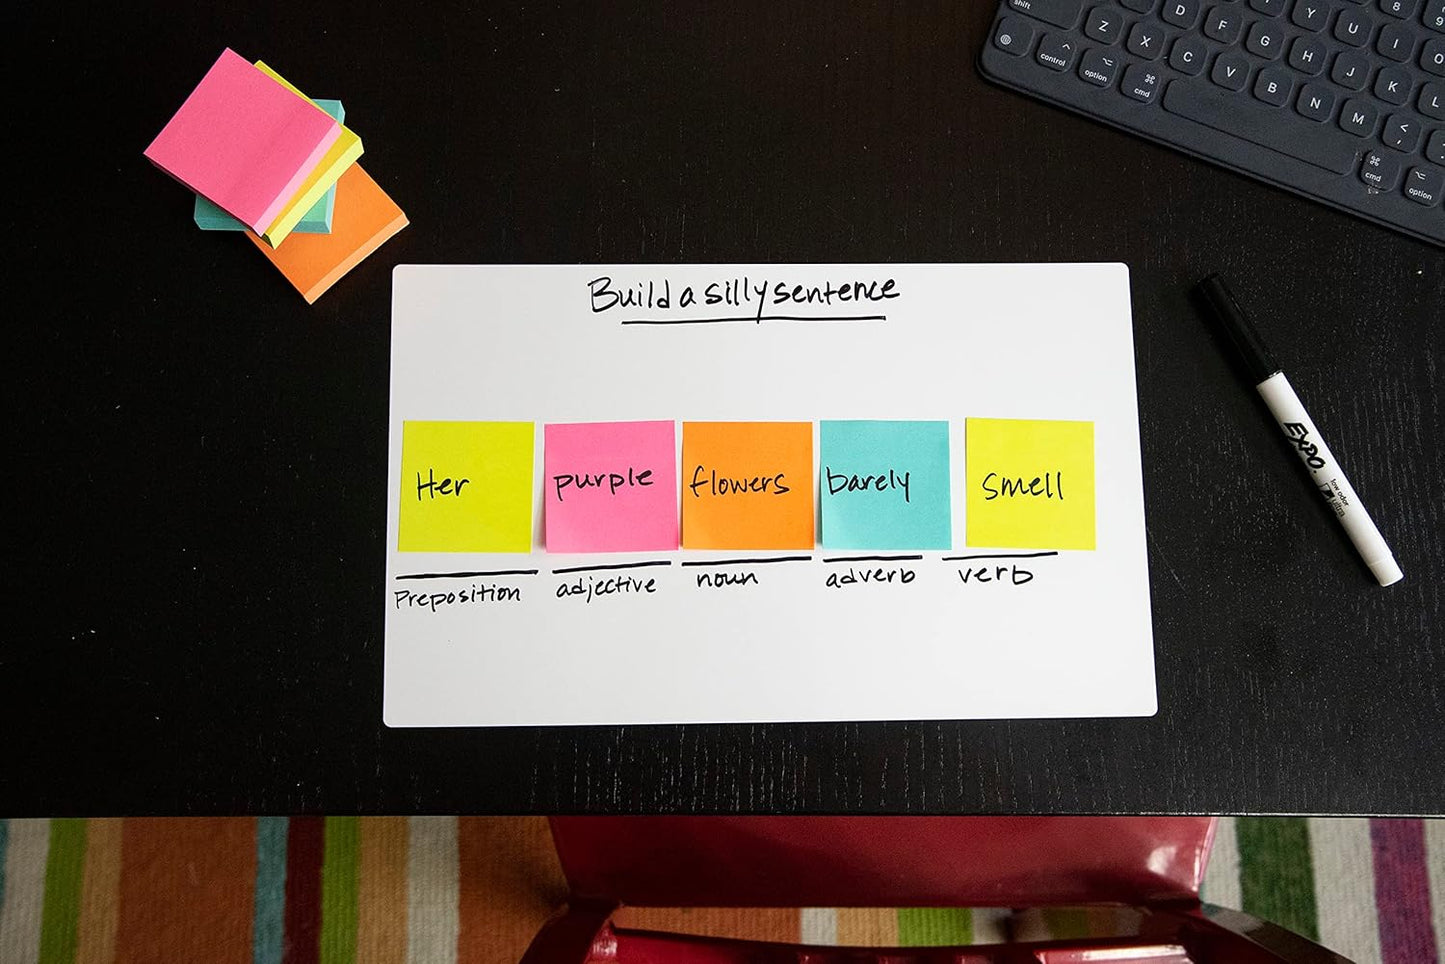 shift Z X C V B N M < D F G H J K L Y U I O 8 9
control option cmd cmd option
Build a silly sentence
Her purple flowers barely smell
Preposition adjective noun adverb verb
EXPO. low odor
ultra